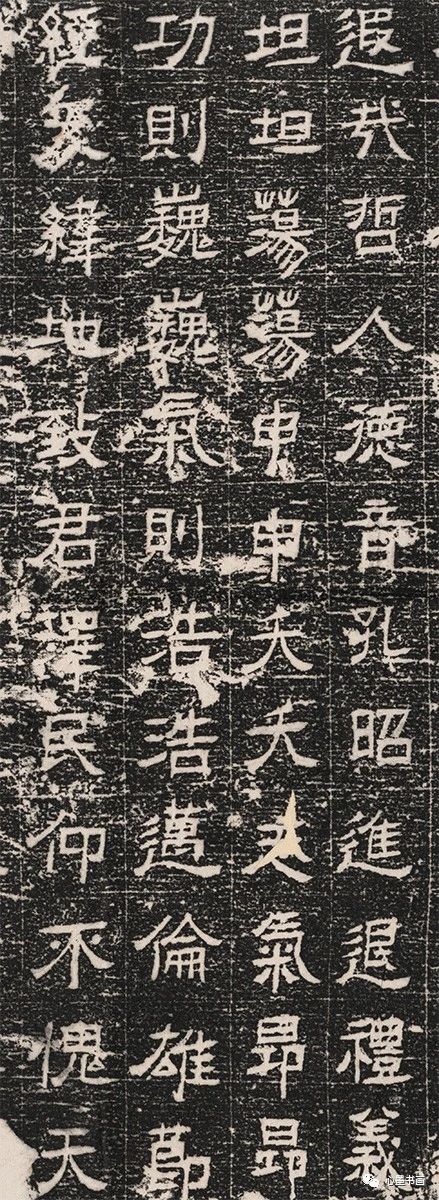 遐哉哲人德音孔昭進退禮義
坦坦蕩蕩申申夭夭氣昂昂
功則巍巍氣則浩浩邁倫雄莭
經天緯地致君澤民仰不愧天